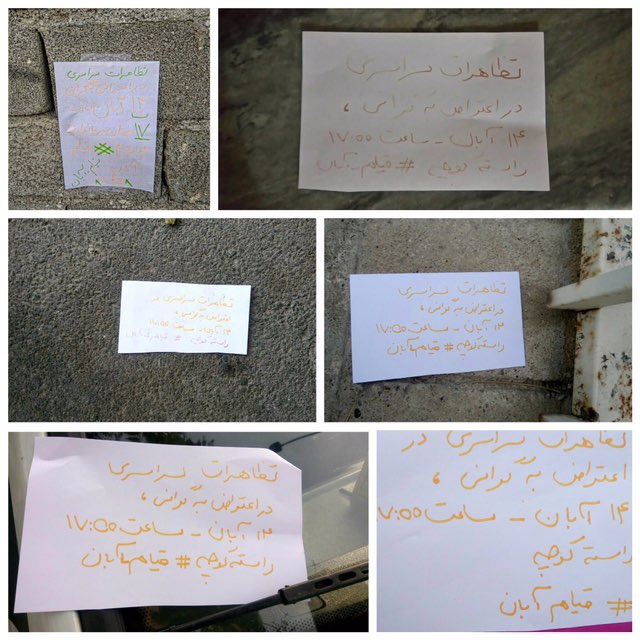 تظاهرات سراسری
۱۴ آبان
۱۷
#
تظاهرات سراسری
در اعتراض به گرانی ،
۱۴ آبان - ساعت ۱۷:۰۰
راسته کوچه # قیام_آبان
تظاهرات سراسری در
اعتراض به گرانی ،
۱۴ آبان - ساعت ۱۷:۰۰
راسته کوچه # قیام آبان
تظاهرات سراسری
در اعتراض به گرانی ،
۱۴ آبان - ساعت ۱۷:۰۰
راسته کوچه # قیام آبان
تظاهرات سراسری
در اعتراض به گرانی ،
۱۴ آبان - ساعت ۱۷:۰۰
راسته کوچه # قیام آبان
تظاهرات سراسری در
اعتراض به گرانی ،
۱۴ آبان - ساعت ۱۷:۰۰
راسته کوچه
# قیام آبان